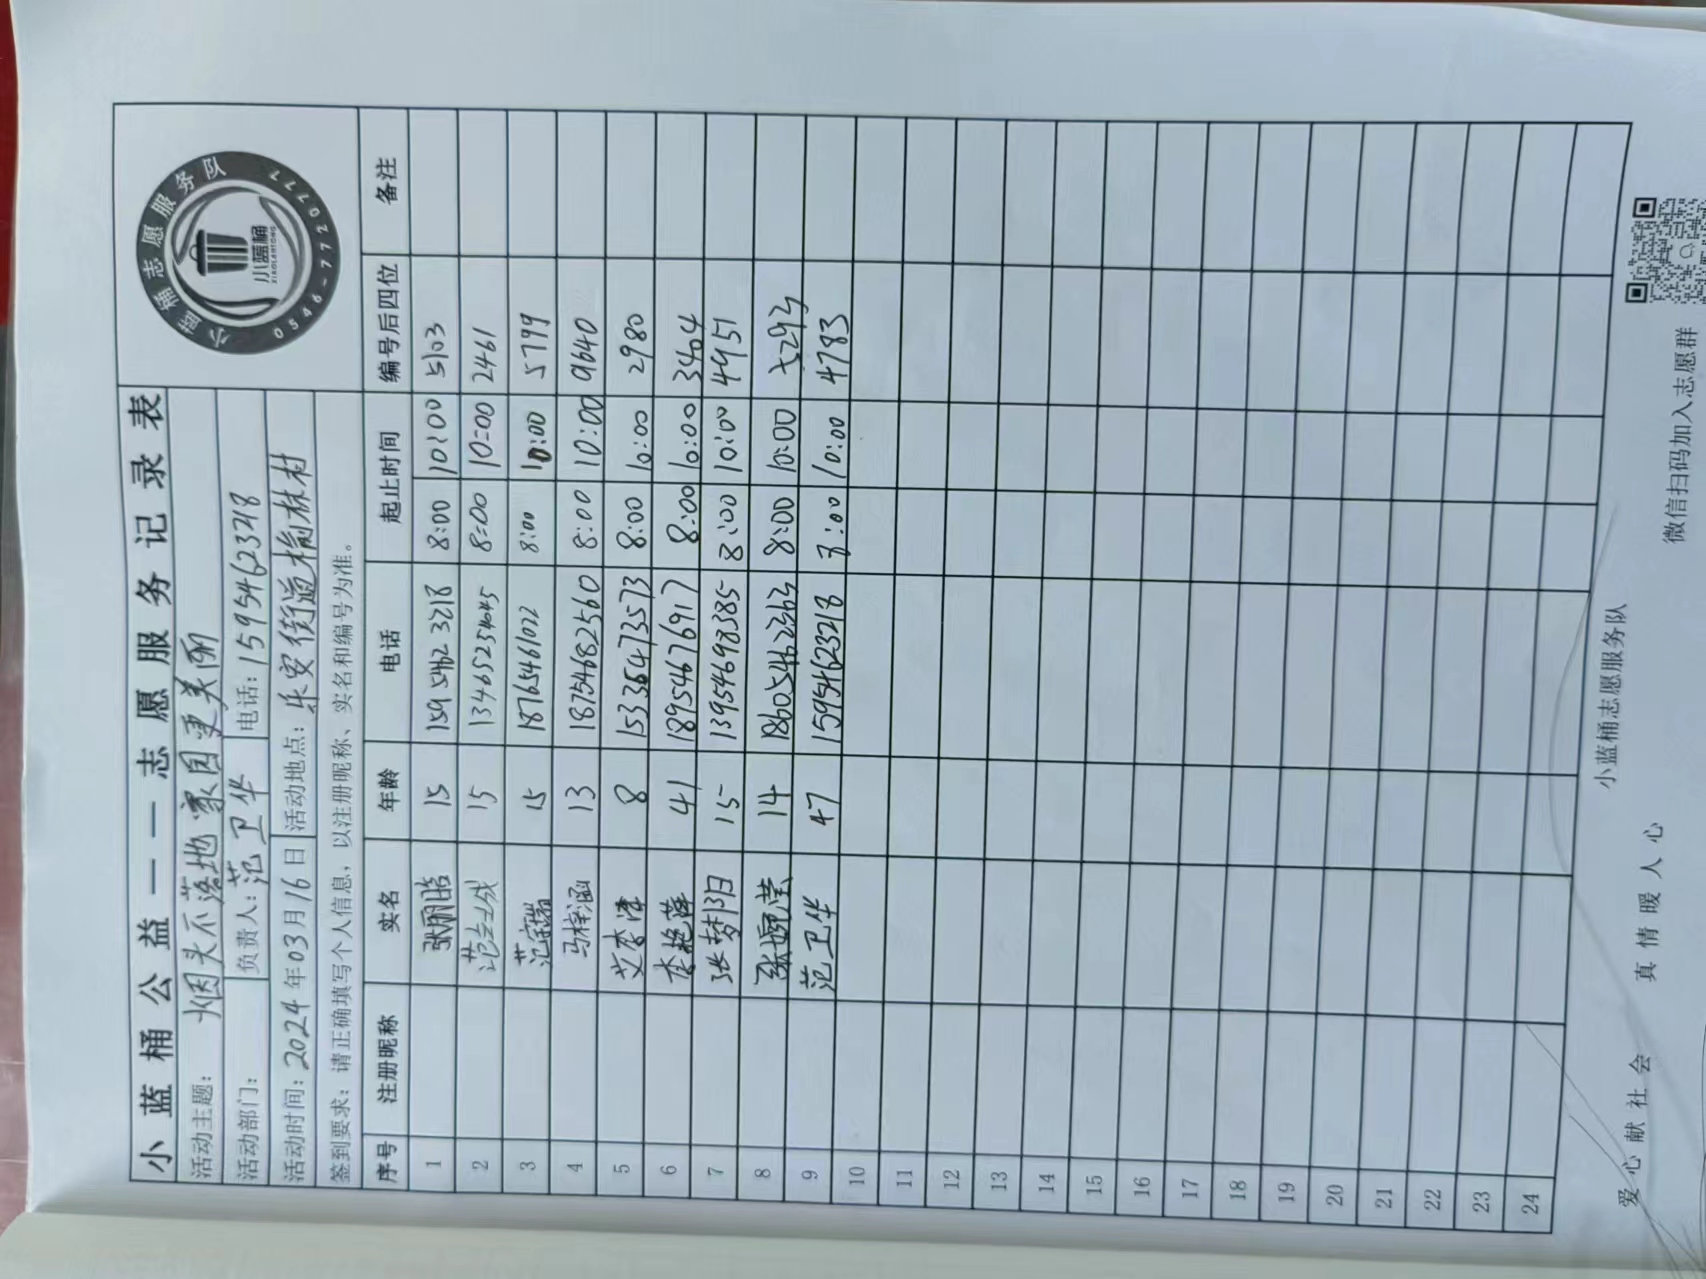 小蓝桶公益——志愿服务记录表
活动主题： 烟头不落地 家园更美丽
活动部门： 负责人：范卫华 电话：15954623218
活动时间：2024年03月16日 活动地点：乐安街道榆林村
签到要求：请正确填写个人信息，以注册昵称、实名和编号为准。
小蓝桶志愿服务队
小蓝桶
XIAOLANTONG
0546-7720777
序号 注册昵称 实名 年龄 电话 起止时间 编号后四位 备注
1 15 15954623218 8:00 10:00 5103
2 15 13465254045 8:00 10:00 2461
3 范 15 18765461022 8:00 10:00 5799
4 马梓涵 13 18754682560 8:00 10:00 9640
5 8 15336473573 8:00 10:00 2980
6 李艳萍 41 18954676917 8:00 10:00 3404
7 张梦阳 15 13954698385 8:00 10:00 4951
8 张婉莹 14 18605462363 8:00 10:00 5293
9 范卫华 47 15954623218 8:00 10:00 4783
10
11
12
13
14
15
16
17
18
19
20
21
22
23
24
小蓝桶志愿服务队
爱心献社会 真情暖人心
微信扫码加入志愿群